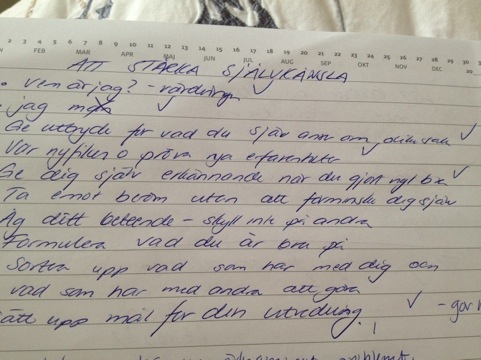 2 3 4 5 6 7 8 9 10 11 12 13 14 15 16 17 18 19 20 21 22 23 24 25 26 27 28 29 30
FEB MAR APR MAJ JUN JUL AUG SEP OKT NOV DEC
ATT STÄRKA SJÄLVKÄNSLA
• vem är jag? - värderingar
• jag
Ge uttryck för vad du själv anser om olika sak ✓
Var nyfiken o pröva nya erfarenheter ✓
Ge dig själv erkännande när du gjort ngt bra ✓
Ta emot beröm utan att förminska dig själv
Äg ditt beteende - skyll inte på andra
Formulera vad du är bra på
Sortera upp vad som har med dig och
vad som har med andra att göra
sätt upp mål för din utveckling. ✓